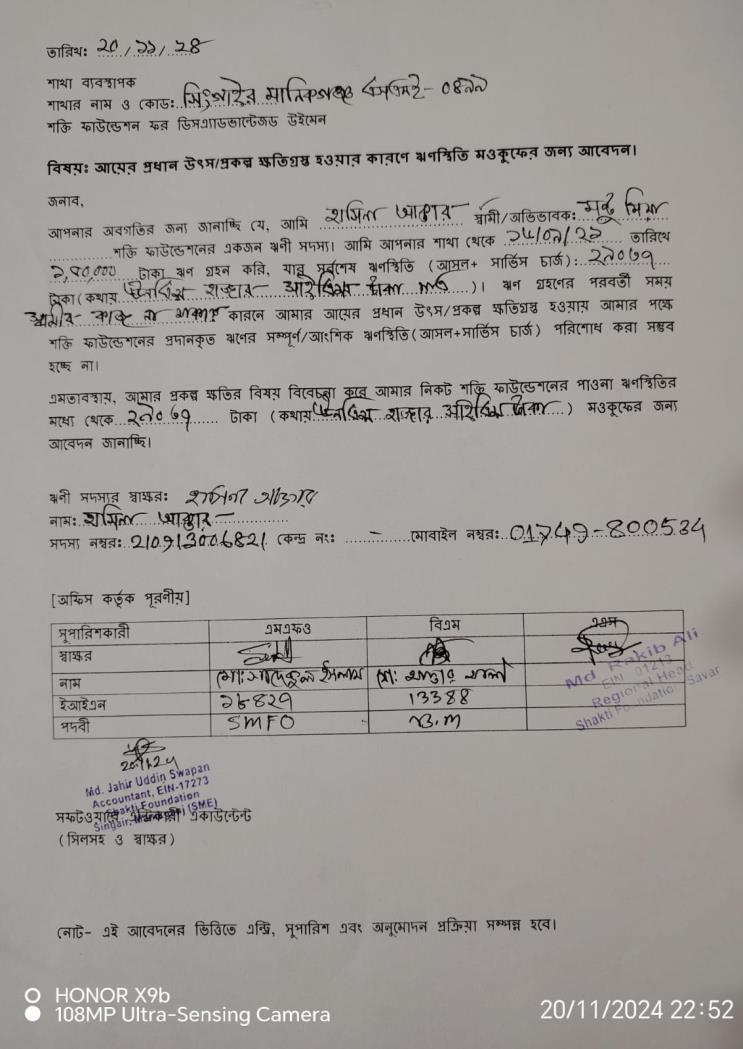 তারিখ: ২০/১১/২৪
শাখা ব্যবস্থাপক
শাখার নাম ও কোড: সিংগাইর মানিকগঞ্জ এসএমই-০৪৯৯
শক্তি ফাউন্ডেশন ফর ডিসএ্যাডভান্টেজড উইমেন
বিষয়: আয়ের প্রধান উৎস/প্রকল্প ক্ষতিগ্রস্ত হওয়ার কারণে ঋণস্থিতি মওকুফের জন্য আবেদন।
জনাব,
আপনার অবগতির জন্য জানাচ্ছি যে, আমি হাসিনা আক্তার স্বামী/অভিভাবক: মন্টু মিয়া
শক্তি ফাউন্ডেশনের একজন ঋনী সদস্য। আমি আপনার শাখা থেকে তারিখে
টাকা ঋন গ্রহন করি, যার সর্বশেষ ঋনস্থিতি (আসল+ সার্ভিস চার্জ): ২৯০৩৭
টাকা (কথায় হাজার টাকা মাত্র)। ঋন গ্রহনের পরবর্তী সময়
কারনে আমার আয়ের প্রধান উৎস/প্রকল্প ক্ষতিগ্রস্ত হওয়ায় আমার পক্ষে
শক্তি ফাউন্ডেশনের প্রদানকৃত ঋনের সম্পূর্ণ/আংশিক ঋনস্থিতি (আসল+সার্ভিস চার্জ) পরিশোধ করা সম্ভব
হচ্ছে না।
এমতাবস্থায়, আমার প্রকল্প ক্ষতির বিষয় বিবেচনা করে আমার নিকট শক্তি ফাউন্ডেশনের পাওনা ঋনস্থিতির
মধ্যে থেকে ২৯০৩৭ টাকা (কথায় হাজার টাকা) মওকুফের জন্য
আবেদন জানাচ্ছি।
ঋনী সদস্যার স্বাক্ষর: হাসিনা আক্তার
নাম: হাসিনা আক্তার
সদস্য নম্বর: 210913006821 কেন্দ্র নং: - মোবাইল নম্বর: 01749-800534
[অফিস কর্তৃক পূরনীয়]
সুপারিশকারী এমএফও বিএম এএম
স্বাক্ষর
নাম মো: সাদেকুল ইসলাম মো:
ইআইএন ১৬৪২৭ 13388
পদবী SMFO B.M
Md. Rakib Ali
EIN 01213
Regional Head
Shakti Foundation Savar
20.11.24
Md. Jahir Uddin Swapan
Accountant, EIN-17273
Shakti Foundation
Singair, (SME)
সফটওয়্যারে এন্ট্রিকারী একাউন্টেন্ট
(সিলসহ ও স্বাক্ষর)
নোট- এই আবেদনের ভিত্তিতে এন্ট্রি, সুপারিশ এবং অনুমোদন প্রক্রিয়া সম্পন্ন হবে।
HONOR X9b
108MP Ultra-Sensing Camera
20/11/2024 22:52